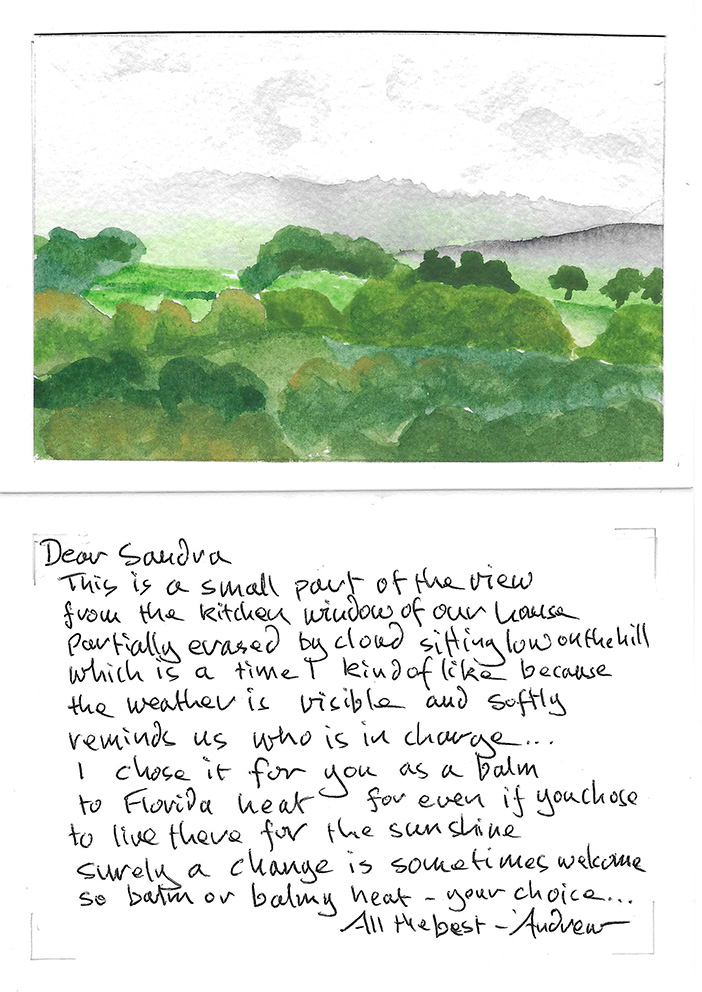 Dear Sandra
This is a small part of the view
from the kitchen window of our house
partially erased by cloud sitting low on the hill
which is a time I kind of like because
the weather is visible and softly
reminds us who is in charge...
I chose it for you as a balm
to Florida heat for even if you chose
to live there for the sunshine
surely a change is sometimes welcome
so balm or balmy heat - your choice...
All the best - Andrew